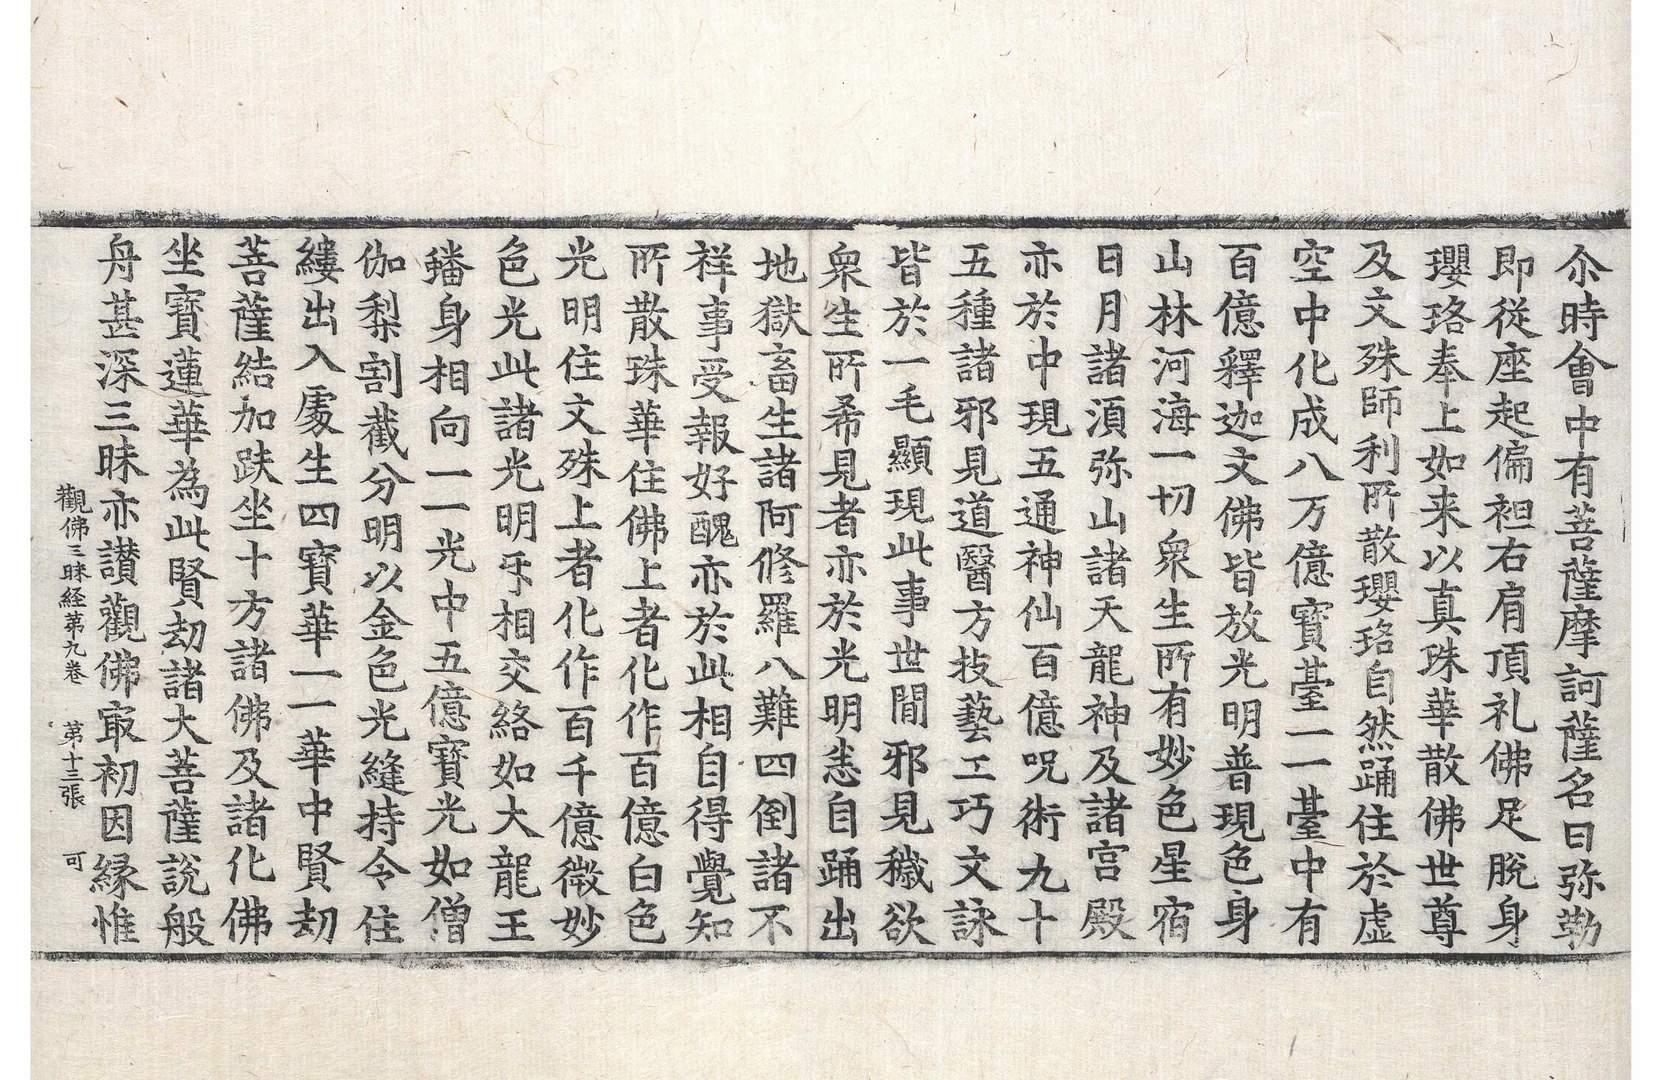 尒時會中有菩薩摩訶薩名曰弥勒
即從座起偏袒右肩頂礼佛足脫身
瓔珞奉上如来以真珠華散佛世尊
及文殊師利所散瓔珞自然踊住於虛
空中化成八万億寶臺一一臺中有
百億釋迦文佛皆放光明普現色身
山林河海一切衆生所有妙色星宿
日月諸湏弥山諸天龍神及諸宮殿
亦於中現五通神仙百億呪術九十
五種諸邪見道醫方技藝工巧文詠
皆於一毛顯現此事世間邪見穢欲
衆生所希見者亦於光明悉自踊出
地獄畜生諸阿修羅八難四倒諸不
祥事受報好醜亦於此相自得覺知
所散珠華住佛上者化作百億白色
光明住文殊上者化作百千億微妙
色光此諸光明牙相交絡如大龍王
蟠身相向一一光中五億寶光如僧
伽梨割截分明以金色光縫持令住
縷出入處生四寶華一一華中賢劫
菩薩結加趺坐十方諸佛及諸化佛
坐寶蓮華為此賢劫諸大菩薩說般
舟甚深三昧亦讃觀佛冣初因緣惟
觀佛三昧経第九卷 第十三張 可